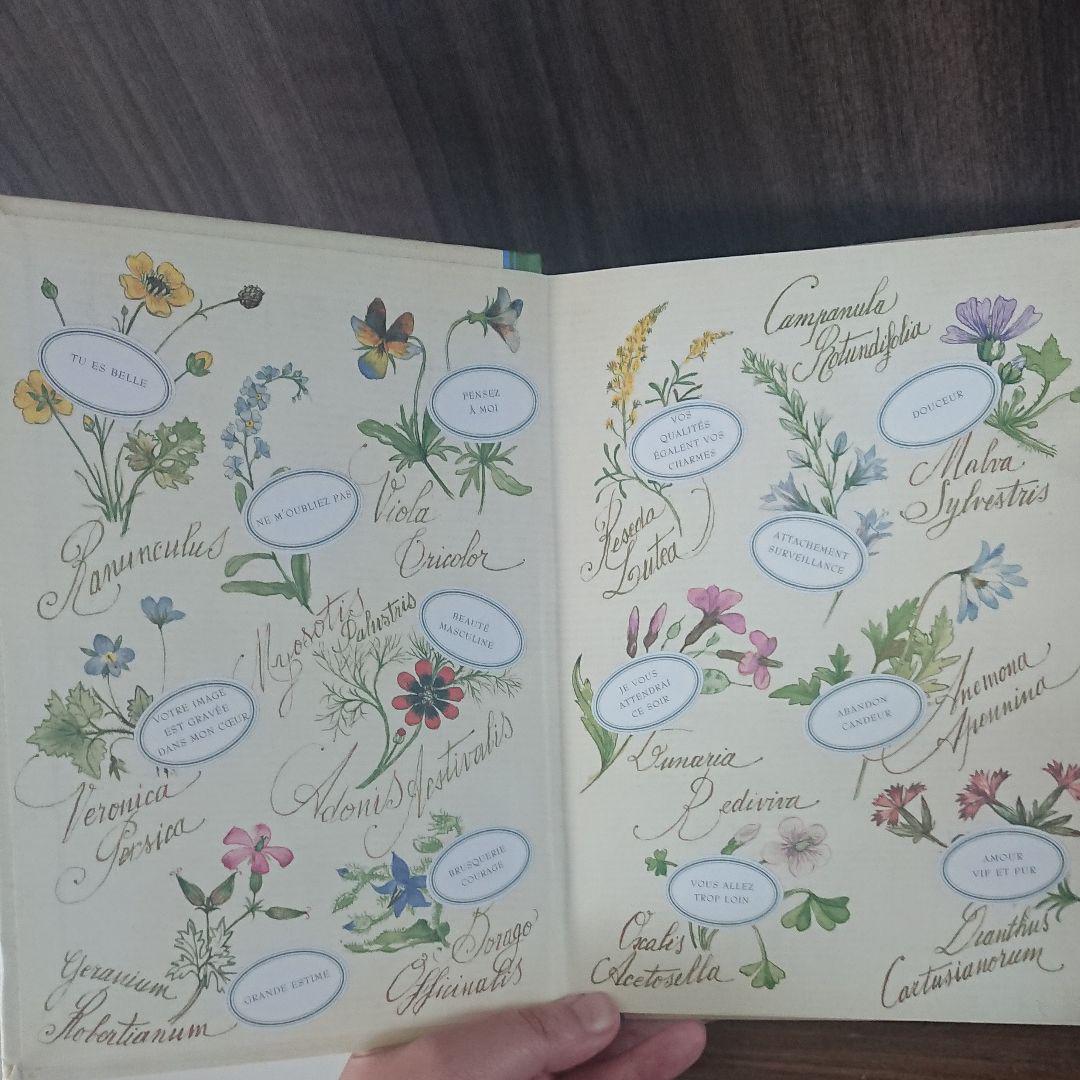 TU ES BELLE
Ranunculus
NE M'OUBLIEZ PAS
Myosotis
Palustris
PENSEZ
À MOI
Viola
Tricolor
VOTRE IMAGE
EST GRAVÉE
DANS MON CŒUR
Veronica
Persica
BEAUTÉ
MASCULINE
Adonis Aestivalis
GRANDE ESTIME
Geranium
Robertianum
BRUSQUERIE
COURAGE
Borago
Officinalis
VOS
QUALITÉS
ÉGALENT VOS
CHARMES
Reseda
Lutea
Campanula
Rotundifolia
ATTACHEMENT
SURVEILLANCE
DOUCEUR
Malva
Sylvestris
JE VOUS
ATTENDRAI
CE SOIR
Lunaria
Rediviva
ABANDON
CANDEUR
Anemona
Apennina
VOUS ALLEZ
TROP LOIN
Oxalis
Acetosella
AMOUR
VIF ET PUR
Dianthus
Cartusianorum